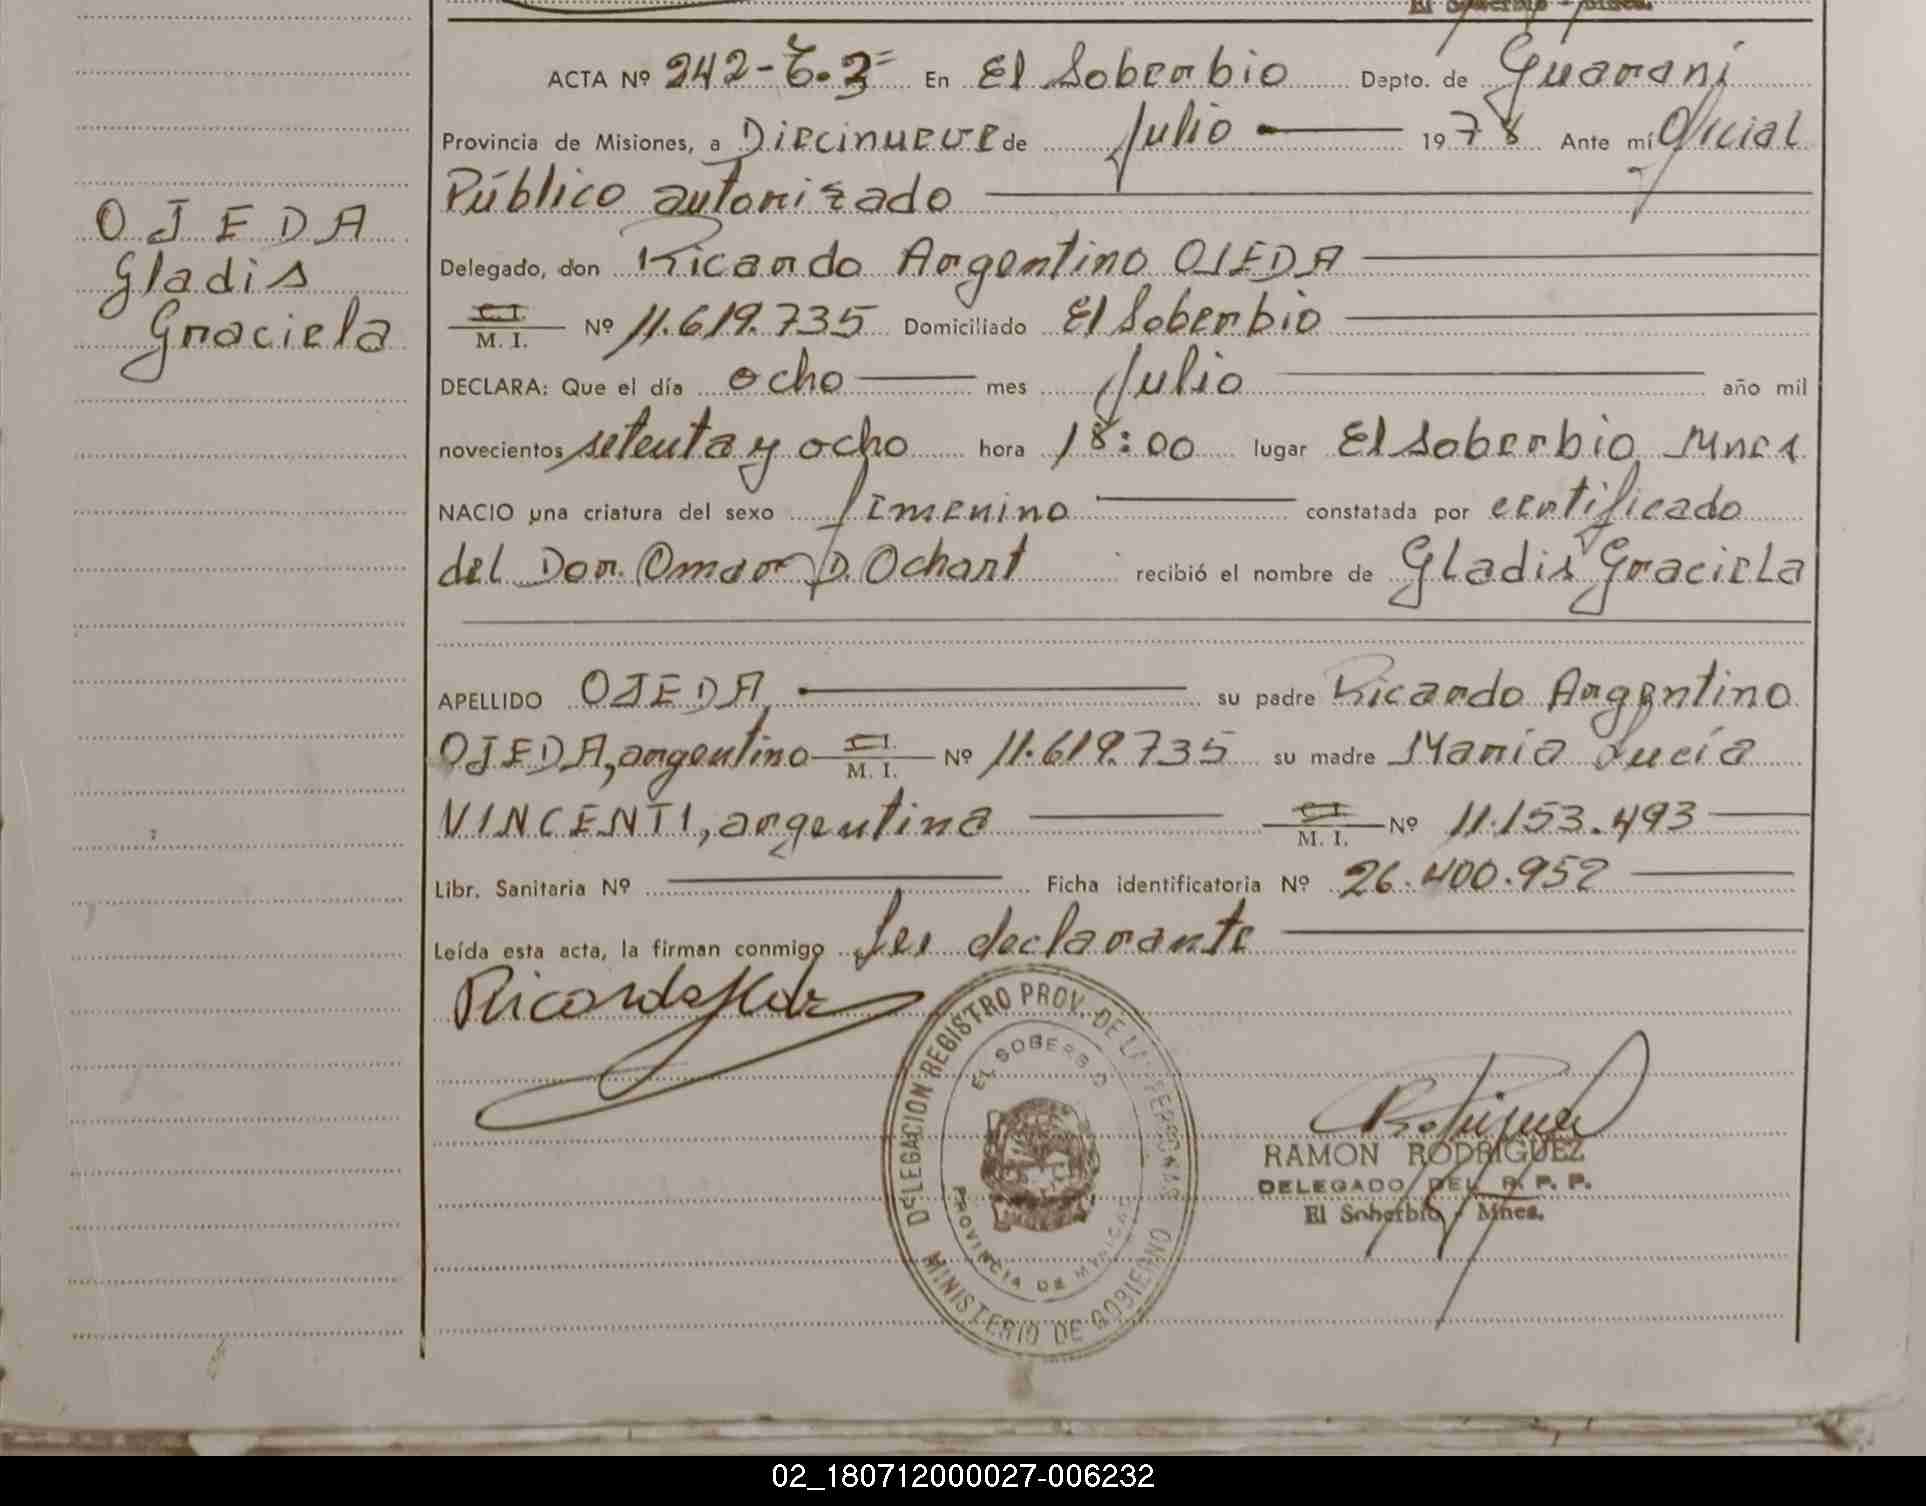 El Soberbio - Mnes.
ACTA Nº 242-T.3= En El Soberbio Depto. de Guaraní
Provincia de Misiones, a Diecinueve de Julio 1978 Ante mí Oficial
Público autorizado
OJEDA
Gladis
Graciela
Delegado, don Ricardo Argentino OJEDA
C.I. M. I. Nº 11.619.735 Domiciliado El Soberbio
DECLARA: Que el día ocho mes Julio año mil
novecientos setenta y ocho hora 18:00 lugar El Soberbio Mnes.
NACIO una criatura del sexo femenino constatada por certificado
del Dor. Omar D. Ochart recibió el nombre de Gladis Graciela
APELLIDO OJEDA, su padre Ricardo Argentino
OJEDA, argentino C.I. M. I. Nº 11.619.735 su madre María Lucía
VINCENTI, argentina C.I. M. I. Nº 11.153.493
Libr. Sanitaria Nº Ficha identificatoria Nº 26.400.952
Leída esta acta, la firman conmigo declarante
DELEGACION REGISTRO PROV. DE LAS PERSONAS
EL SOBERBIO
PROVINCIA DE MISIONES
MINISTERIO DE GOBIERNO
RAMON RODRIGUEZ
DELEGADO DEL R. P. P.
El Soberbio - Mnes.
02_180712000027-006232